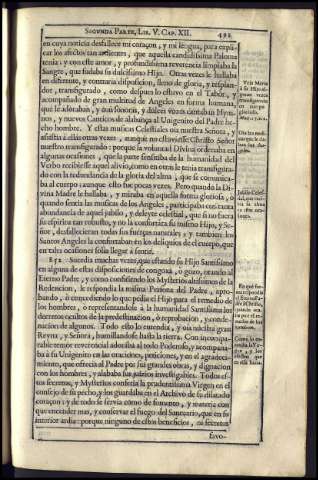 SEGUNDA PARTE, LIB. V. CAP. XII. 493
en cuya noticia desfallece mi coraçon, y mi lengua, para expli-
car los afectos tan ardientes, que aquella candidissima Paloma
tenia: y con este amor, y profundissima reverencia limpiaba la
Sangre, que sudaba su dulcissimo Hijo. Otras vezes le hallaba
en diferente, y contraria disposicion, lleno de gloria, y resplan-
dor, transfigurado, como después lo estuvo en el Tabòr, y
acompañado de gran multitud de Angeles en forma humana,
que le adoraban, y con sonora, y dulces vozes cantaban Hym-
nos, y nuevos Canticos de alabança al Unigenito del Padre he-
cho hombre. Y estas musicas Celestiales oìa nuestra Señora, y
assistia à ellas otras vezes, aunque no estuviesse Christo Señor
nuestro transfigurado: porque la voluntad Divina ordenaba en
algunas ocasiones, que la parte sensitiva de la humanidad del
Verbo recibiesse aquel alivio, como en otras le tenia transfigura-
do con la redundancia de la gloria del alma, que se comunica-
ba al cuerpo; aunque esto fue pocas vezes. Pero quando la Di-
vina Madre le hallaba, y miraba en aquella forma gloriosa, ò
quando sentia las musicas de los Angeles, participaba con tanta
abundancia de aquel jubilo, y deleyte celestial, que si no fuera
su espiritu tan robusto, y no la confortàra su mismo Hijo, y Se-
ñor, desfallecieran todas sus fuerças naturales; y tambien los
Santos Angeles la confortaban en los desliquios de el cuerpo, que
en tales ocasiones solìa llegar à sentir.
852. Sucedia muchas vezes, que estando su Hijo Santissimo
en alguna de estas disposiciones de congoxa, ò gozo, orando al
Eterno Padre, y como confiriendo los Mysterios altissimos de la
Redencion, le respondia la misma Persona del Padre, apro-
bando, ò concediendo lo que pedia el Hijo para el remedio de
los hombres, ò representandole à la humanidad Santissima los
decretos ocultos de la predestinacion, ò reprobacion, y conde-
nacion de algunos. Todo esto lo entendia, y oìa nuestra gran
Reyna, y Señora, humillandose hasta la tierra. Con incompa-
rable temor reverencial adoraba al todo Poderoso, y acompaña-
ba à su Unigenito en las oraciones, peticiones, y en el agradeci-
miento, que ofrecia al Padre por sus grandes obras, y dignacion
con los hombres, y alababa sus juizios investigables. Todos es-
tos secretos, y Mysterios conferìa la prudentissima Virgen en el
consejo de su pecho, y los guardaba en el Archivo de su dilatado
coraçon: y de todo se servia como de fomento, y materia con
que encender mas, y conservar el fuego del Santuario, que en su
interior ardia: porque ninguno de estos beneficios, ni secretos